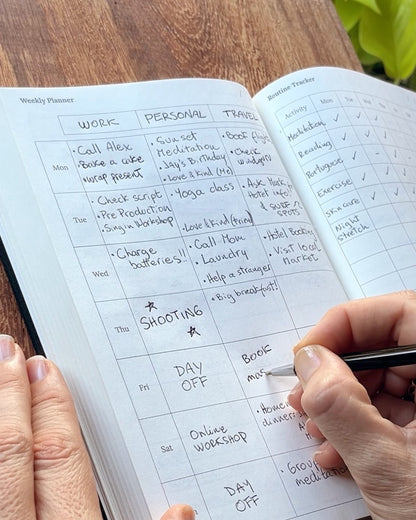 Weekly Planner
WORK PERSONAL TRAVEL
Mon
• Call Alex
• Bake a cake
• wrap present
• Sunset
Meditation
• Jay's Birthday
• Love & kind (Me)
• Book flight
• Check
Tue
• Check script
• Pre Production
• Singin Workshop
Yoga class
• Love & kind (friend)
• Ask
hotel info
& SURF
SPOTS
Wed
• Charge
batteries!!
• Call Mom
• Laundry
• Help a stranger
• Hotel Booking
• Visit local
market
Thu
SHOOTING
• Big breakfast!
Fri
DAY
OFF
BOOK
mas
Sat
Online
WORKSHOP
• Home
dinner
DAY
OFF
• Group
meditation
Routine Tracker
Activity Mon Tue Wed
Meditation
Reading
Portuguese
Exercise
Skin care
Night
Stretch